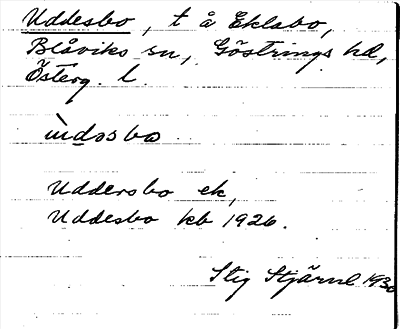 Uddesbo, t å Eklabo,
Blåviks sn, Göstrings hd,
Österg. l.
ùdəsbo
Uddersbo ek,
Uddesbo kb 1926.
Stig Stjärne